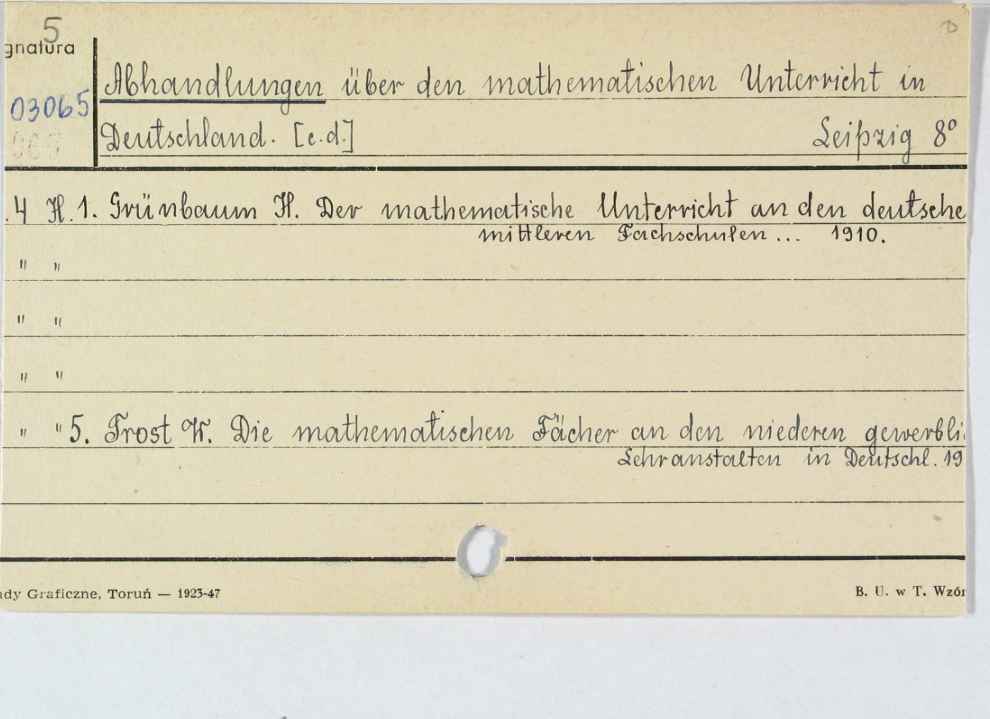 5
gnatura
D
03065
Abhandlungen über den mathematischen Unterricht in
Deutschland. [c.d.] Leipzig 8°
.4 H.1. Grünbaum H. Der mathematische Unterricht an den deutsche
mittleren Fachschulen... 1910.
" "
" "
" "
" " 5. Frost W. Die mathematischen Fächer an den niederen gewerbli
Lehranstalten in Deutschl. 19
ady Graficzne, Toruń — 1923-47
B. U. w T. Wzór